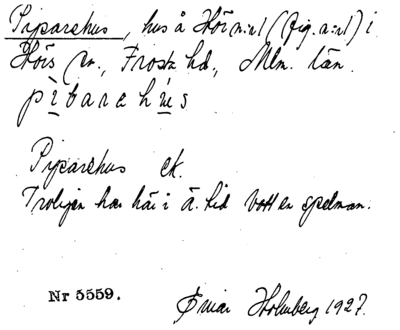 Piparehus, hus å Hör n:r 1 (fig. a:r 1) i
Hörs sn., Frosta hd., Mlm. län.
pìbarehùs
Piparehus ek.
Troligen har här i ä. tid bott en spelman.
Nr 5559. Einar Holmberg 1927.